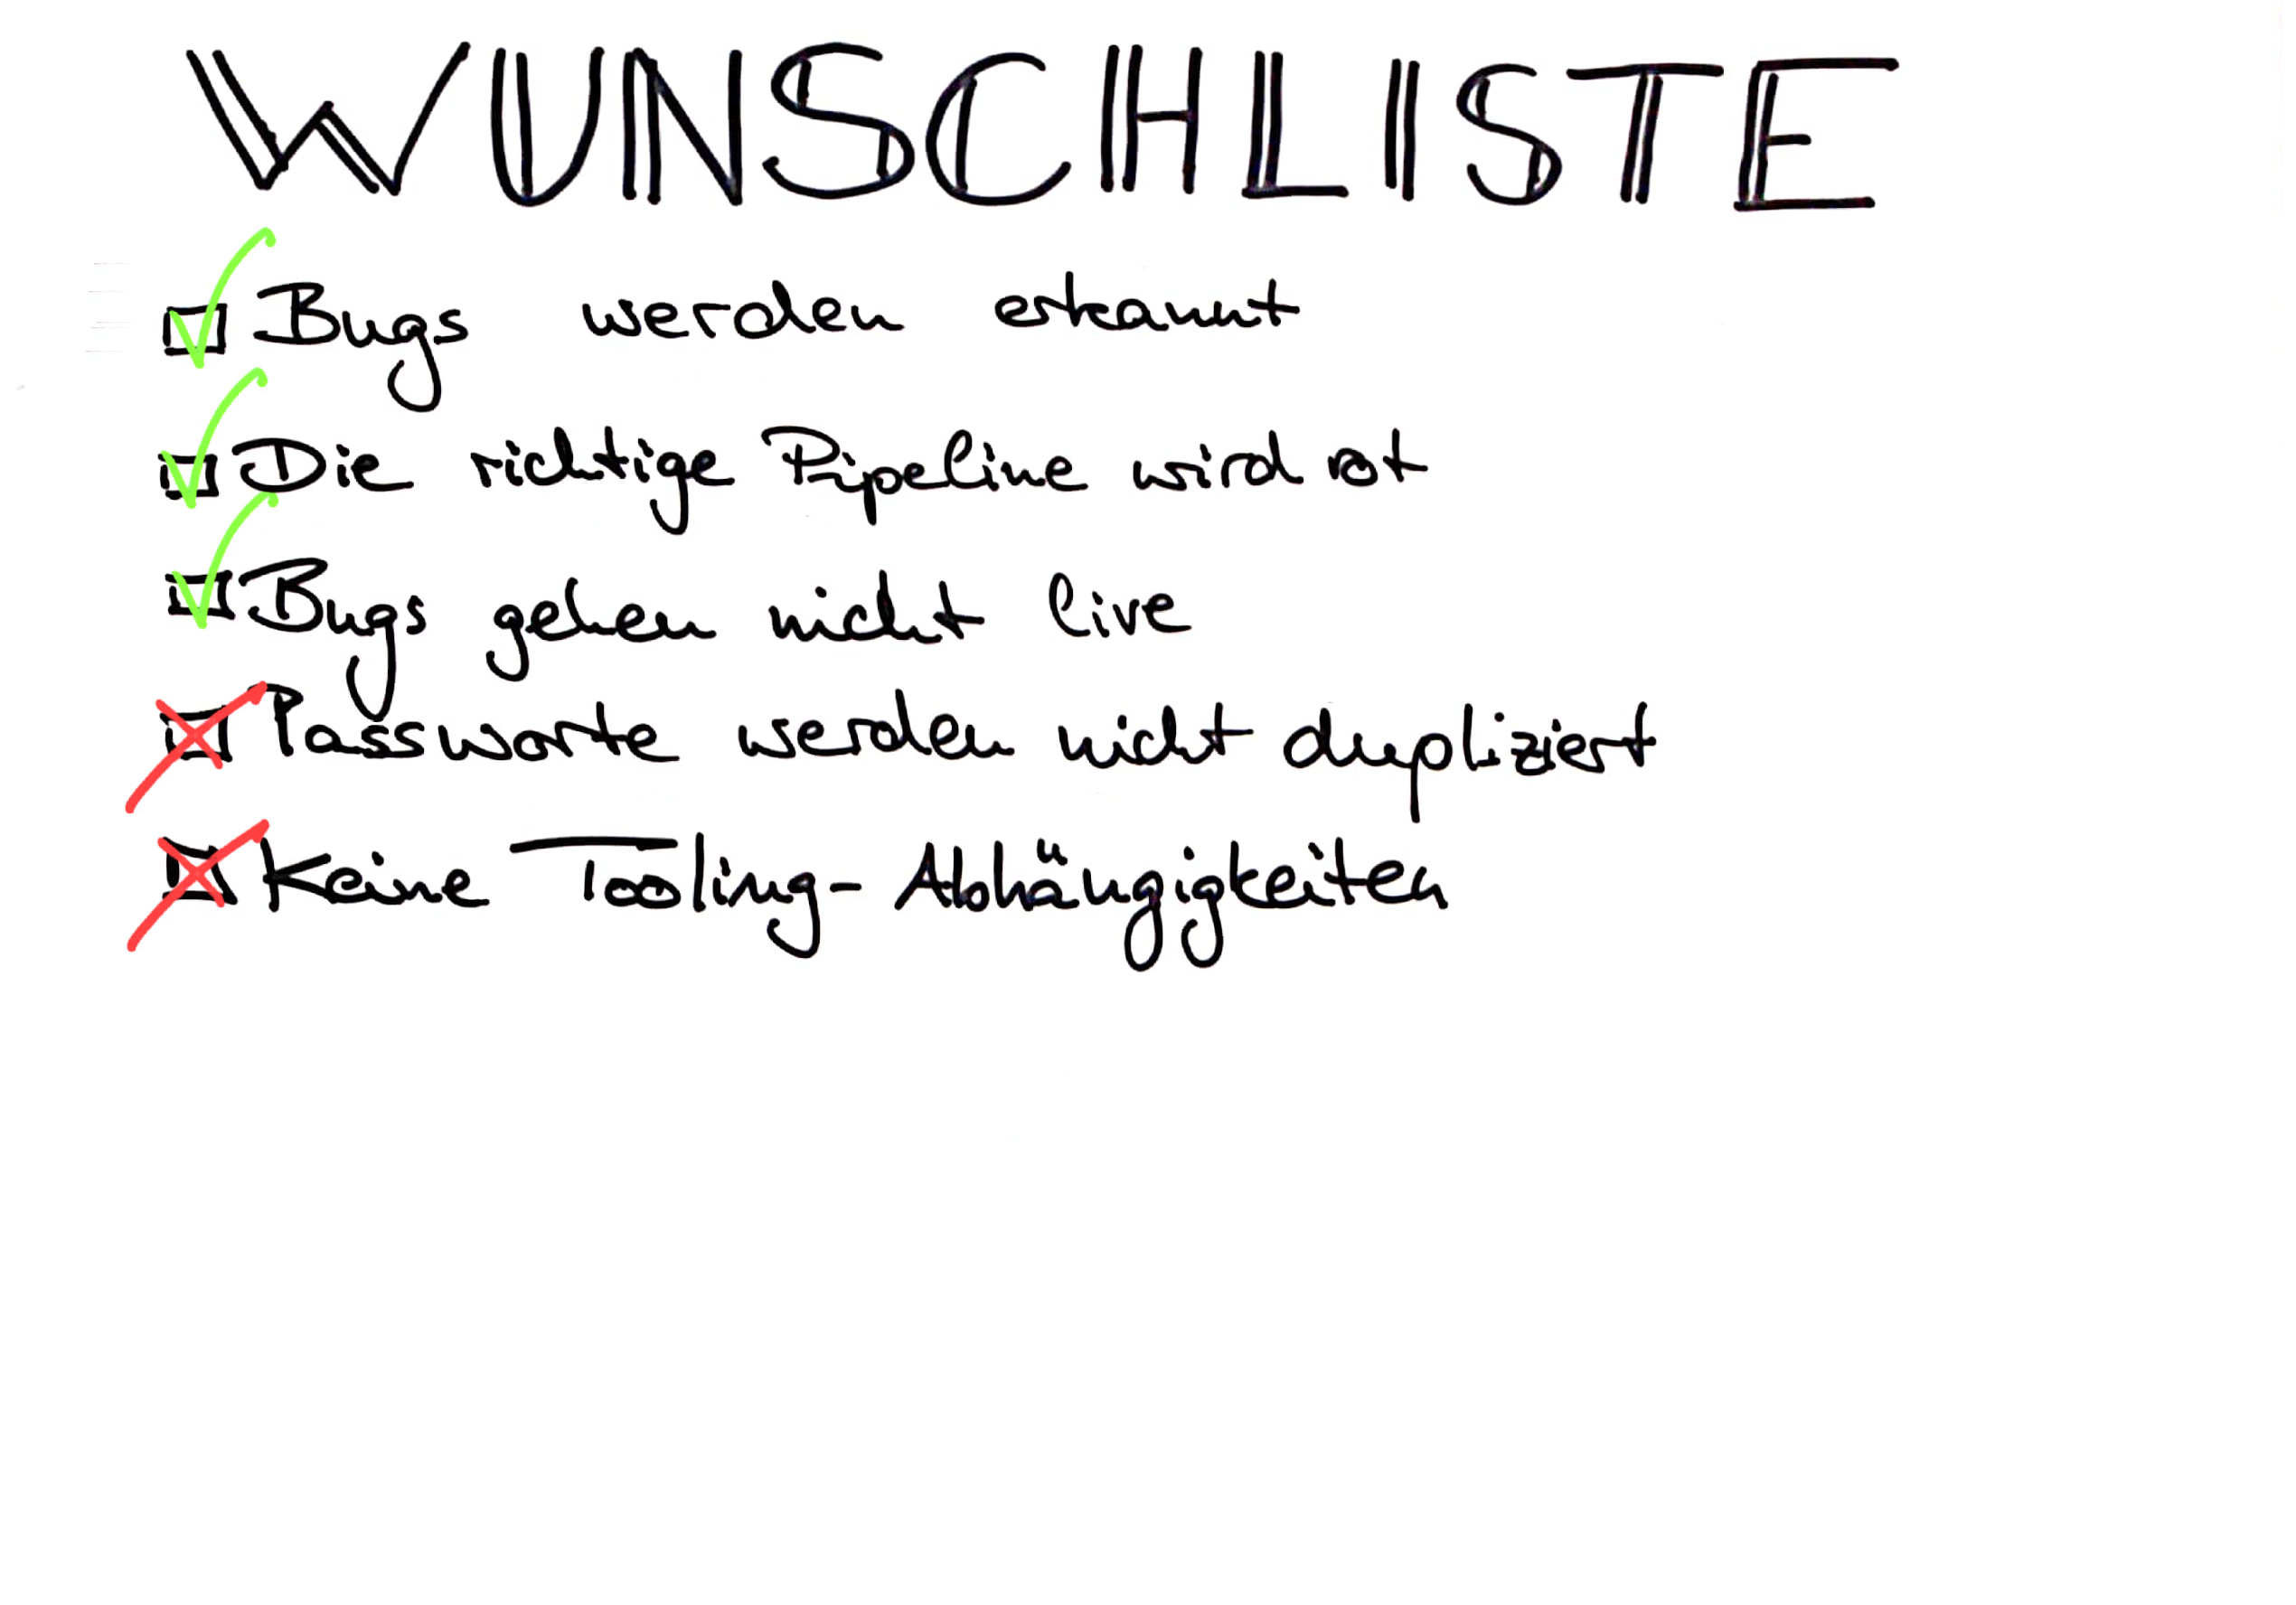 WUNSCHLISTE
Bugs werden erkannt
Die richtige Pipeline wird rot
Bugs gehen nicht live
Passworte werden nicht dupliziert
Keine Tooling-Abhängigkeiten